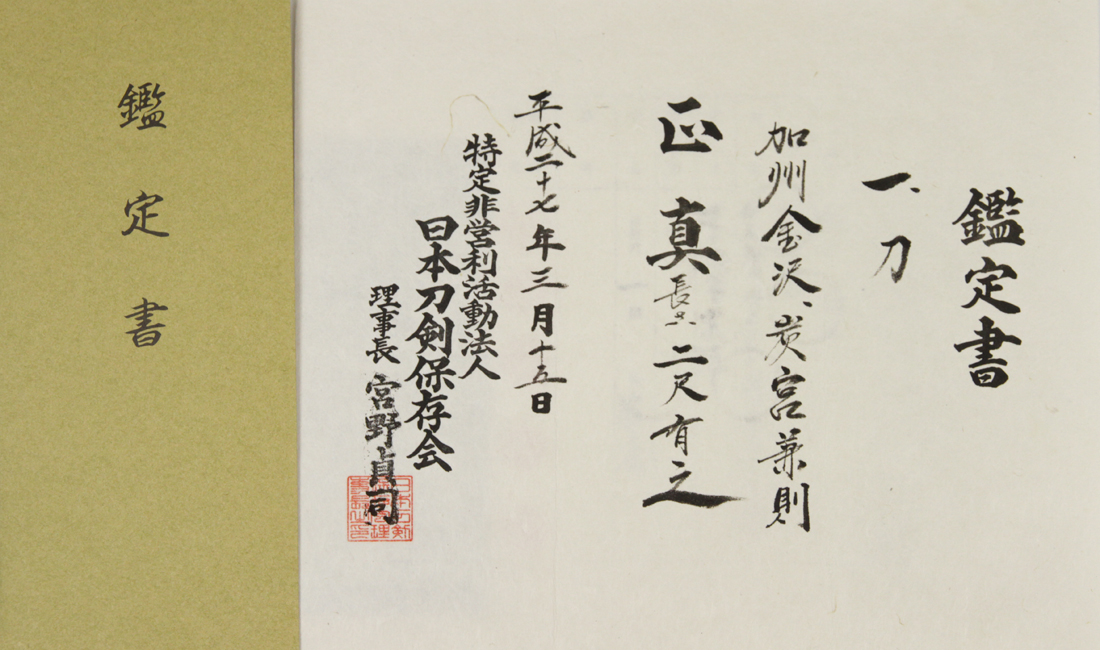 鑑定書
鑑定書
一、刀
加州金沢、炭宮兼則
正真
長さ二尺有之
平成二十七年三月十五日
特定非営利活動法人
日本刀剣保存会
理事長 宮野貞司